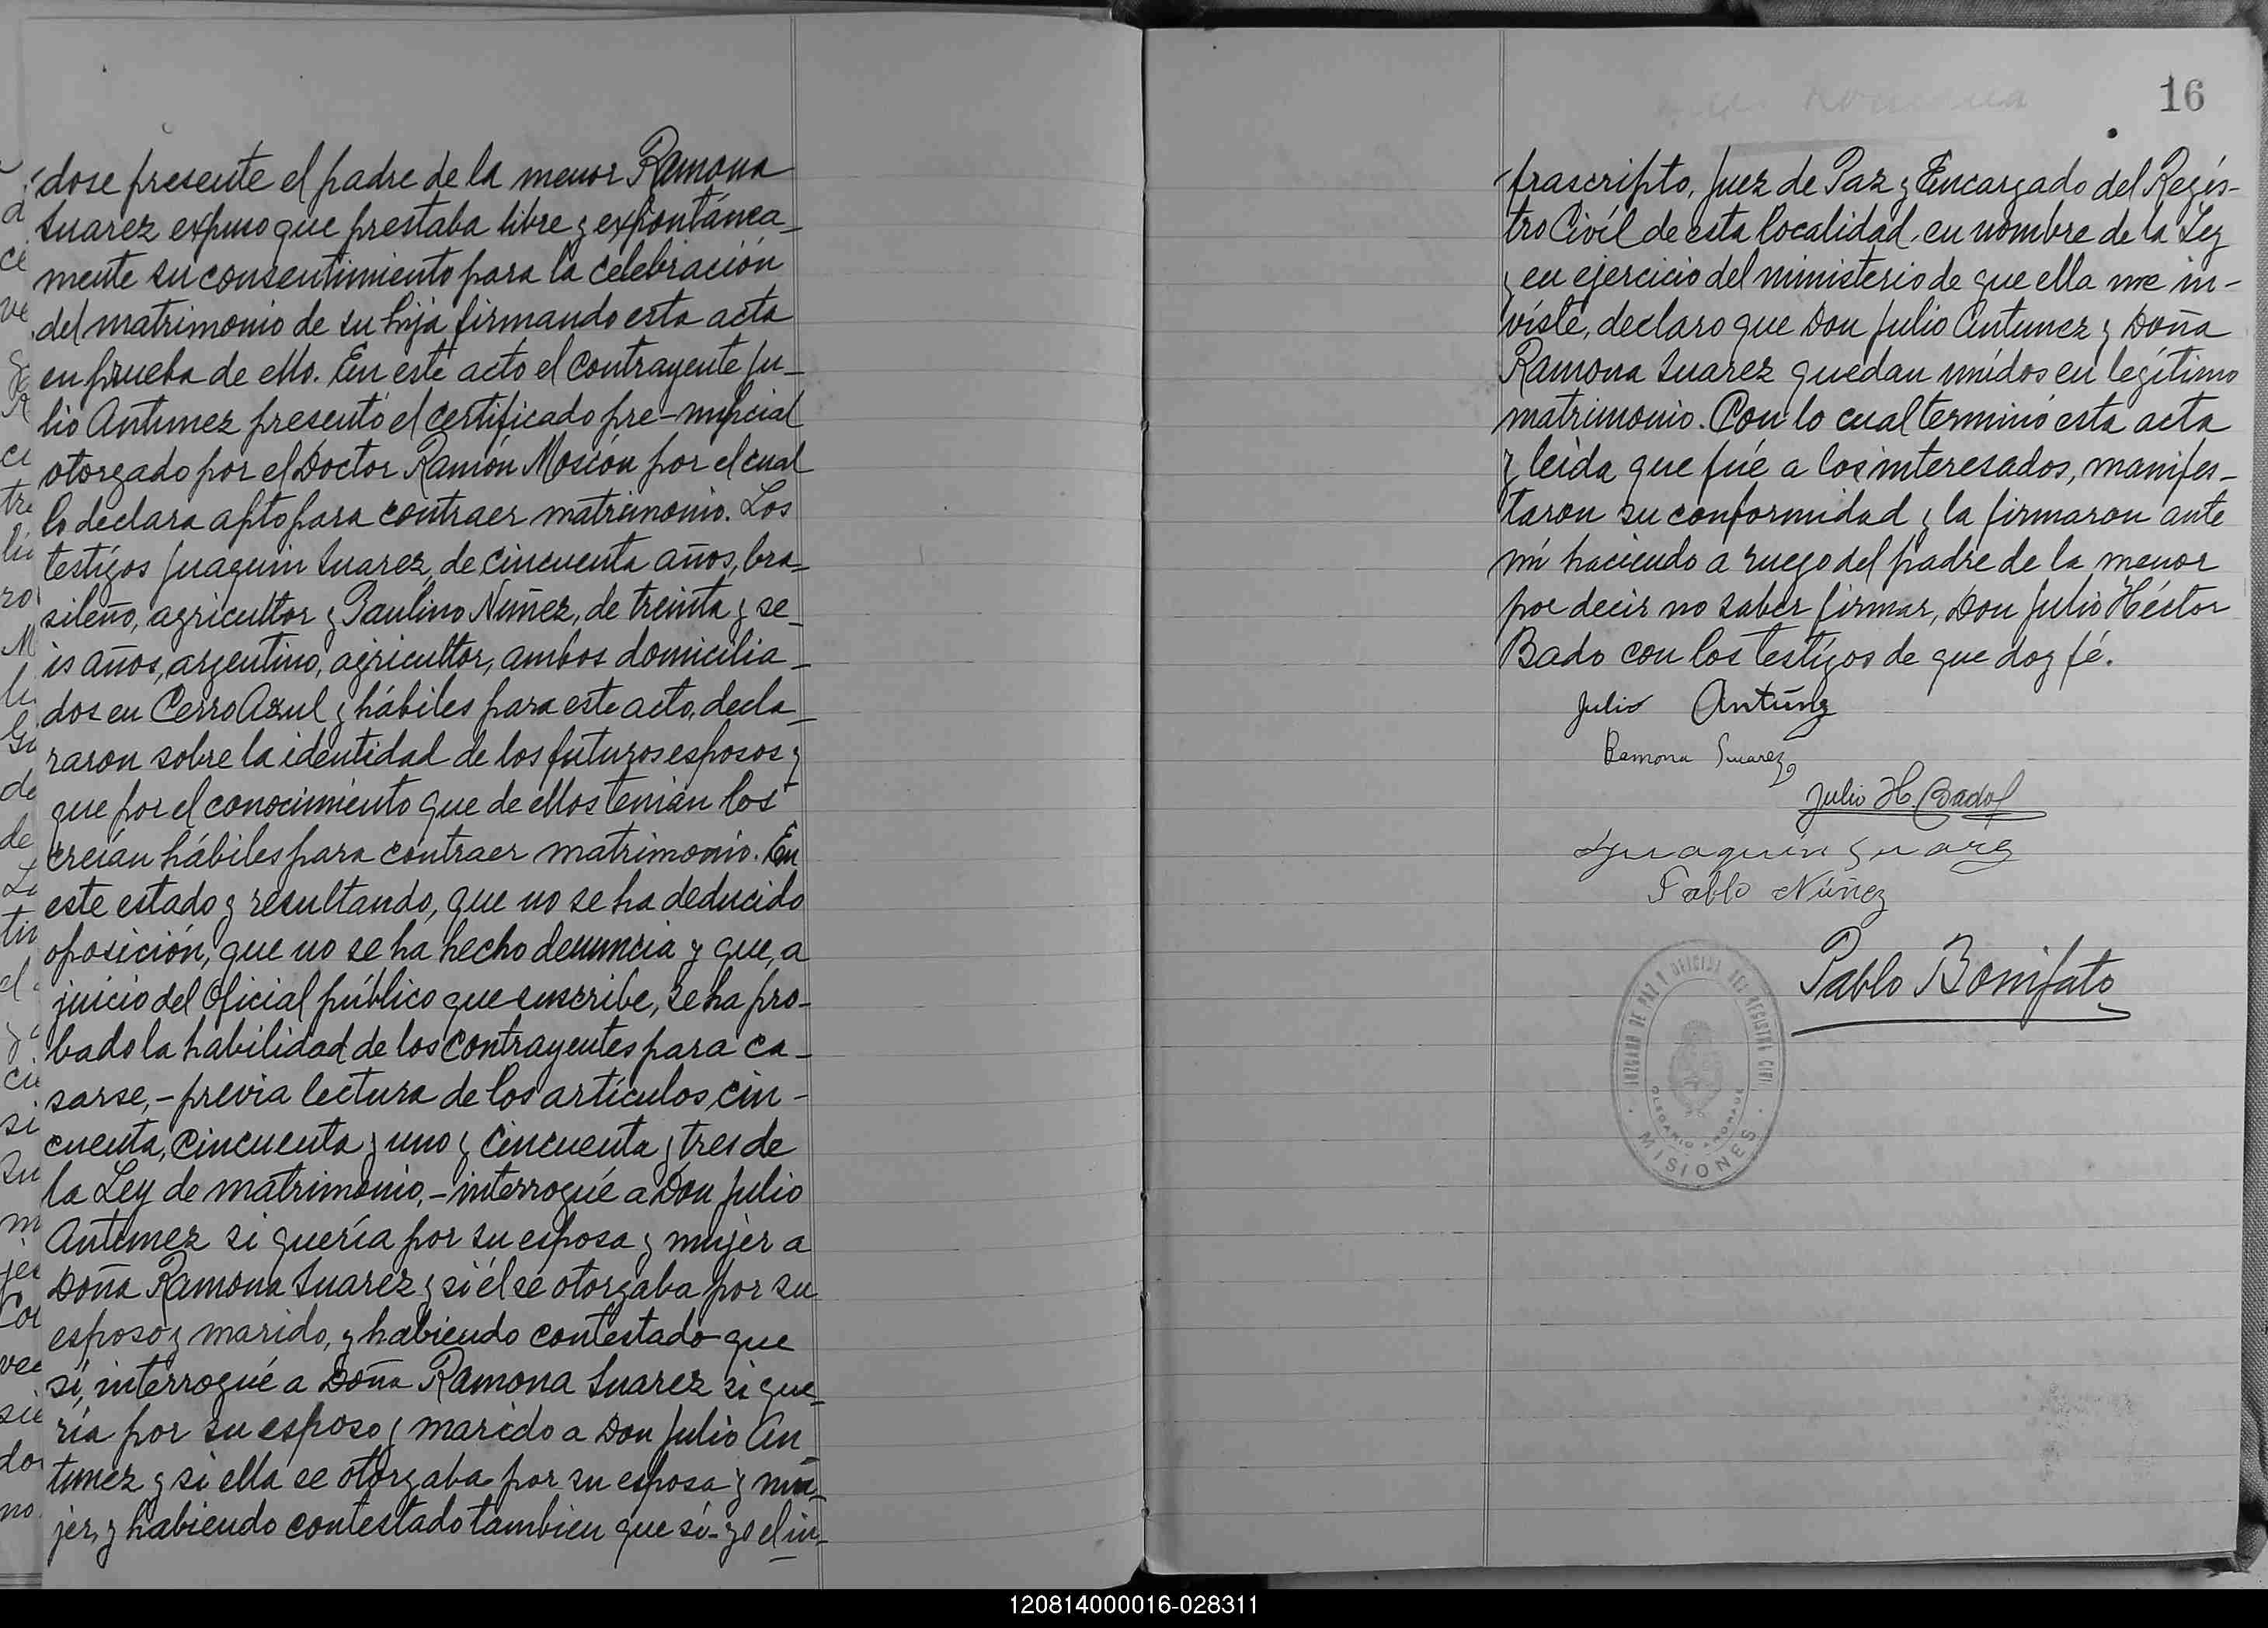 dose presente el padre de la menor Ramona
Suarez expuso que prestaba libre y expontánea-
mente su consentimiento para la celebración
del matrimonio de su hija firmando esta acta
en prueba de ello. En este acto el contrayente Ju-
lio Antunez presentó el certificado pre-nupcial
otorgado por el Doctor Ramón Mosión por el cual
lo declara apto para contraer matrimonio. Los
testigos Juaquin Suarez, de cincuenta años, bra-
sileño, agricultor y Paulino Nuñez, de treinta y se-
is años, argentino, agricultor, ambos domicilia-
dos en Cerro Azul y hábiles para este acto, decla-
raron sobre la identidad de los futuros esposos y
que por el conocimiento que de ellos tenían los
creían hábiles para contraer matrimonio. En
este estado y resultando, que no se ha deducido
oposición, que no se ha hecho denuncia y que, a
juicio del Oficial público que suscribe, se ha pro-
bado la habilidad de los contrayentes para ca-
sarse,- previa lectura de los artículos cin-
cuenta, cincuenta y uno y cincuenta y tres de
la Ley de matrimonio,- interrogué a Don Julio
Antunez si quería por su esposa y mujer a
Doña Ramona Suarez y si él se otorgaba por su
esposo y marido, y habiendo contestado que
sí, interrogué a Doña Ramona Suarez si que-
ría por su esposo y marido a Don Julio An-
tunez y si ella se otorgaba por su esposa y mu-
jer, y habiendo contestado tambien que sí- yo el in-
16
frascripto, Juez de Paz y Encargado del Regís-
tro Civíl de esta localidad, en nombre de la Ley
y en ejercicio del ministerio de que ella me in-
viste, declaro que Don Julio Antunez y Doña
Ramona Suarez quedan unídos en legítimo
matrimonio. Con lo cual terminó esta acta
y leída que fué a los interesados, manifes-
taron su conformidad y la firmaron ante
mí haciendo a ruego del padre de la menor
por decir no saber firmar, Don Julio Héctor
Bado con los testígos de que doy fé.
Julio Antúnz
Ramona Suarez
Julio H. Bado
Juaquin Suarez
Pablo Núñez
Pablo Bonifato
JUZGADO DE PAZ Y OFICINA DEL REGISTRO CIVIL
MISIONES
120814000016-028311